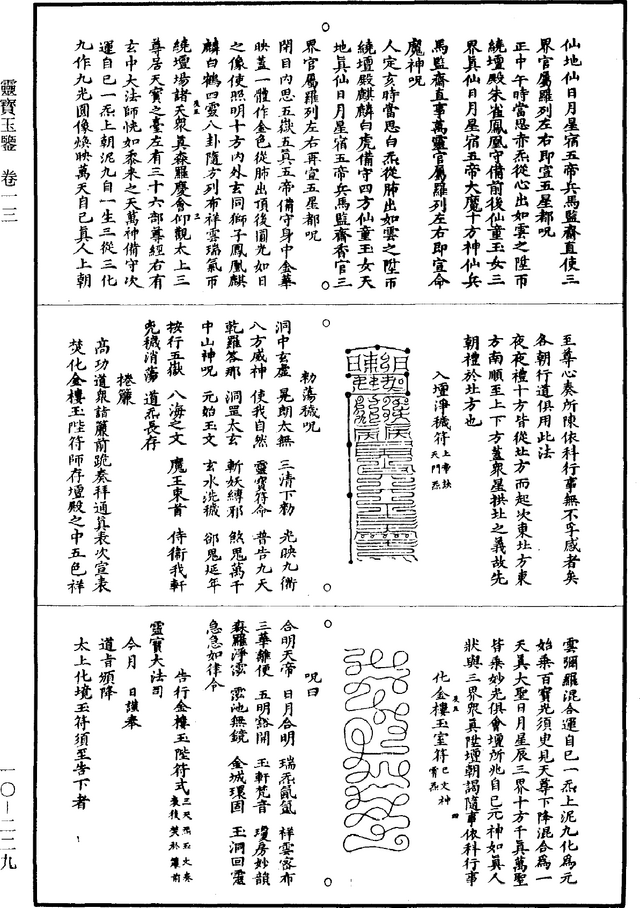 仙地仙日月星宿五帝兵馬監齋直使三
界官屬羅列左右即宣五星都呪
正中午時當思赤炁從心出如雲之陞帀
繞壇殿朱雀鳳凰守備前後仙童玉女三
界真仙日月星宿五帝大魔十方神仙兵
馬監齋直事萬靈官屬羅列左右即宣命
魔神呪
人定亥時當思白炁從肺出如雲之陞帀
繞壇殿麒麟白虎備守四方仙童玉女天
地真仙日月星宿五帝兵馬監齋香官三
界官屬羅列左右再宣五星都呪
閉目內思五嶽五真五帝備守身中金華
映蓋一體作金色從肺出頂後圓光如日
之像使照明十方內外玄同獅子鳳凰麒
麟白鶴四靈八卦隨方列布祥雲瑞氣帀
繞壇場諸天眾真森羅慶會仰觀太上三
尊居天寶之臺左有三十六部尊經右有
玄中大法師恍如黍米之天萬神備守次
運自己一炁上朝泥九自一生三從三化
九作九光圓像煥映萬天自己真人上朝
至尊心奏所陳依科行事無不孚感者矣
各朝行道俱用此法
夜夜禮十方皆從北方而起次東北方東
方南順至上下方蓋眾星拱北之義故先
朝禮於北方也
入壇淨穢符
勅蕩穢呪
洞中玄虛 晃朗太無 三清下勅 光映九衢
八方威神 使我自然 靈寶符命 普告九天
乾羅答那 洞罡太玄 斬妖縛邪 煞鬼萬千
中山神呪 元始玉文 玄水洗穢 卻鬼延年
按行五嶽 八海之文 魔王束首 侍衛我軒
兇穢消蕩 道炁長存
捲簾
高功道眾詣簾前跪奏拜通真表次宣表
焚化金樓玉陛符師存壇殿之中五色祥
雲彌羅混合運自己一炁上泥九化為元
始乘百寶光須臾見天尊下降混合為一
天真大聖日月星辰三界十方千真萬聖
皆乘妙光俱會壇所兆自己元神如真人
狀與三界眾真陞壇朝謁隨事依科行事
化金樓玉室符
呪曰
合明天帝 日月合明 瑞炁氤氳 祥雲密布
三華離便 五明豁開 玉軒梵音 瓊房妙韻
森羅淨瀅 雲池無鏡 金城環固 玉洞回靈
急急如律令
告行金樓玉陛符式
靈寶大法司
今月 日謹奉
道旨頒降
太上化境玉符須至告下者
靈寶玉鑒 卷一三
一〇—二二九